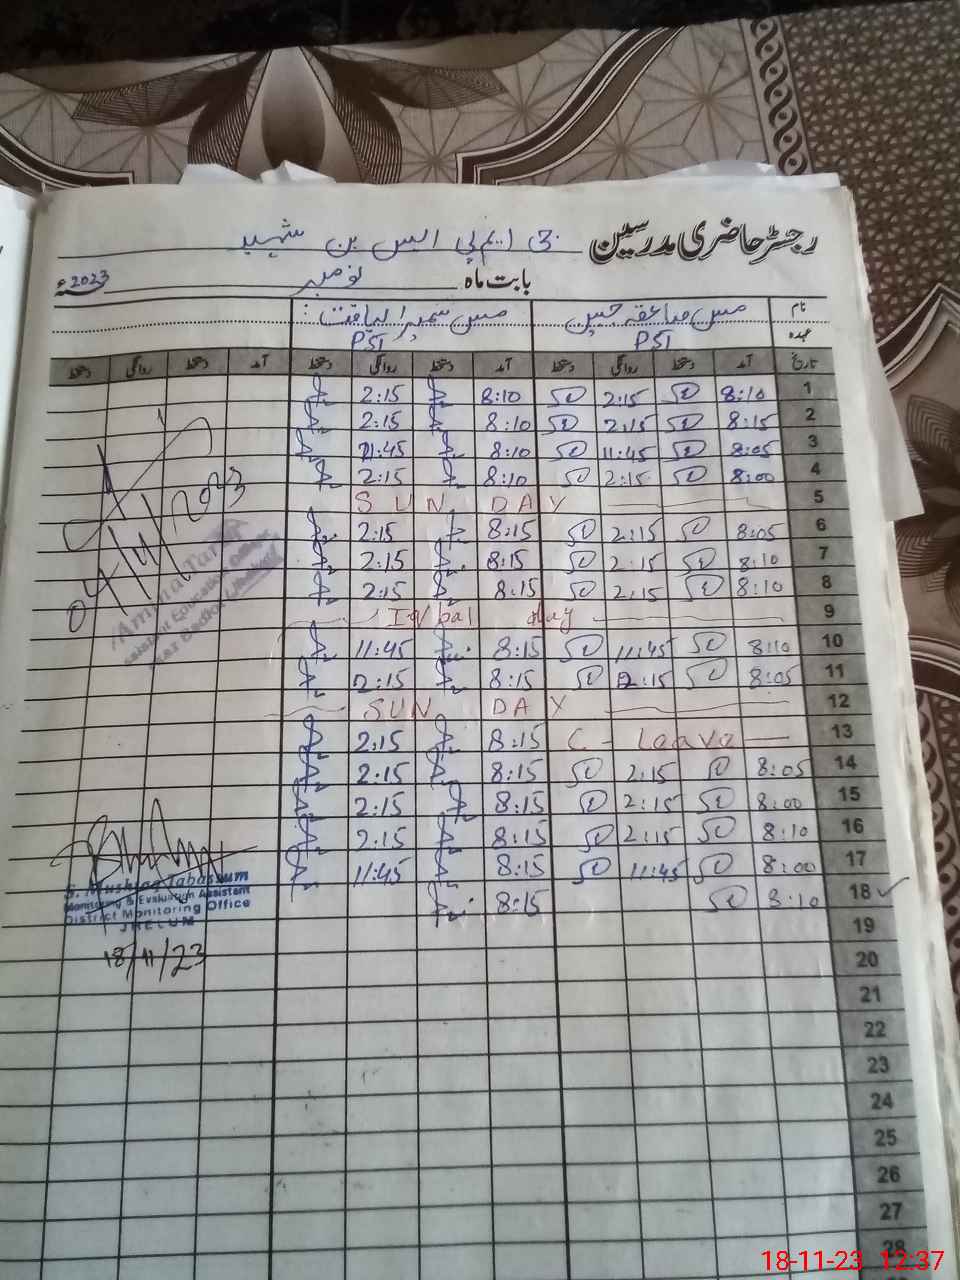 رجسٹر حاضری مدرسین جی ایم پی ایس بن شہید
بابت ماہ نومبر 2023ء
نام مس جبیں مس سمیرا لیاقت
عہدہ PST PST
تاریخ آمد دستخط روانگی دستخط آمد دستخط روانگی دستخط آمد دستخط روانگی دستخط
1 8:10 2:15 8:10 2:15
2 8:15 2:15 8:10 2:15
3 8:05 11:45 8:10 11:45
4 8:00 2:15 8:10 2:15
5 SUN DAY
6 8:05 2:15 8:15 2:15
7 8:10 2:15 8:15 2:15
8 8:10 2:15 8:15 2:15
9 Iqbal day
10 8:10 11:45 8:15 11:45
11 8:05 2:15 8:15 2:15
12 SUN DAY
13 C - Leave 8:15 2:15
14 8:05 2:15 8:15 2:15
15 8:00 2:15 8:15 2:15
16 8:10 2:15 8:15 2:15
17 8:00 11:45 8:15 11:45
18 8:10 8:15
19
20
21
22
23
24
25
26
27
28
04/11/2023
Amina Tariq
Assistant Education Officer
S. Mushtaq Tabassum
Monitoring & Evaluation Assistant
District Monitoring Office
JHELUM
18/11/23
18-11-23 12:37